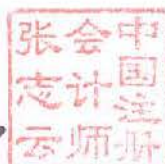 中国注册
会计师
张志云